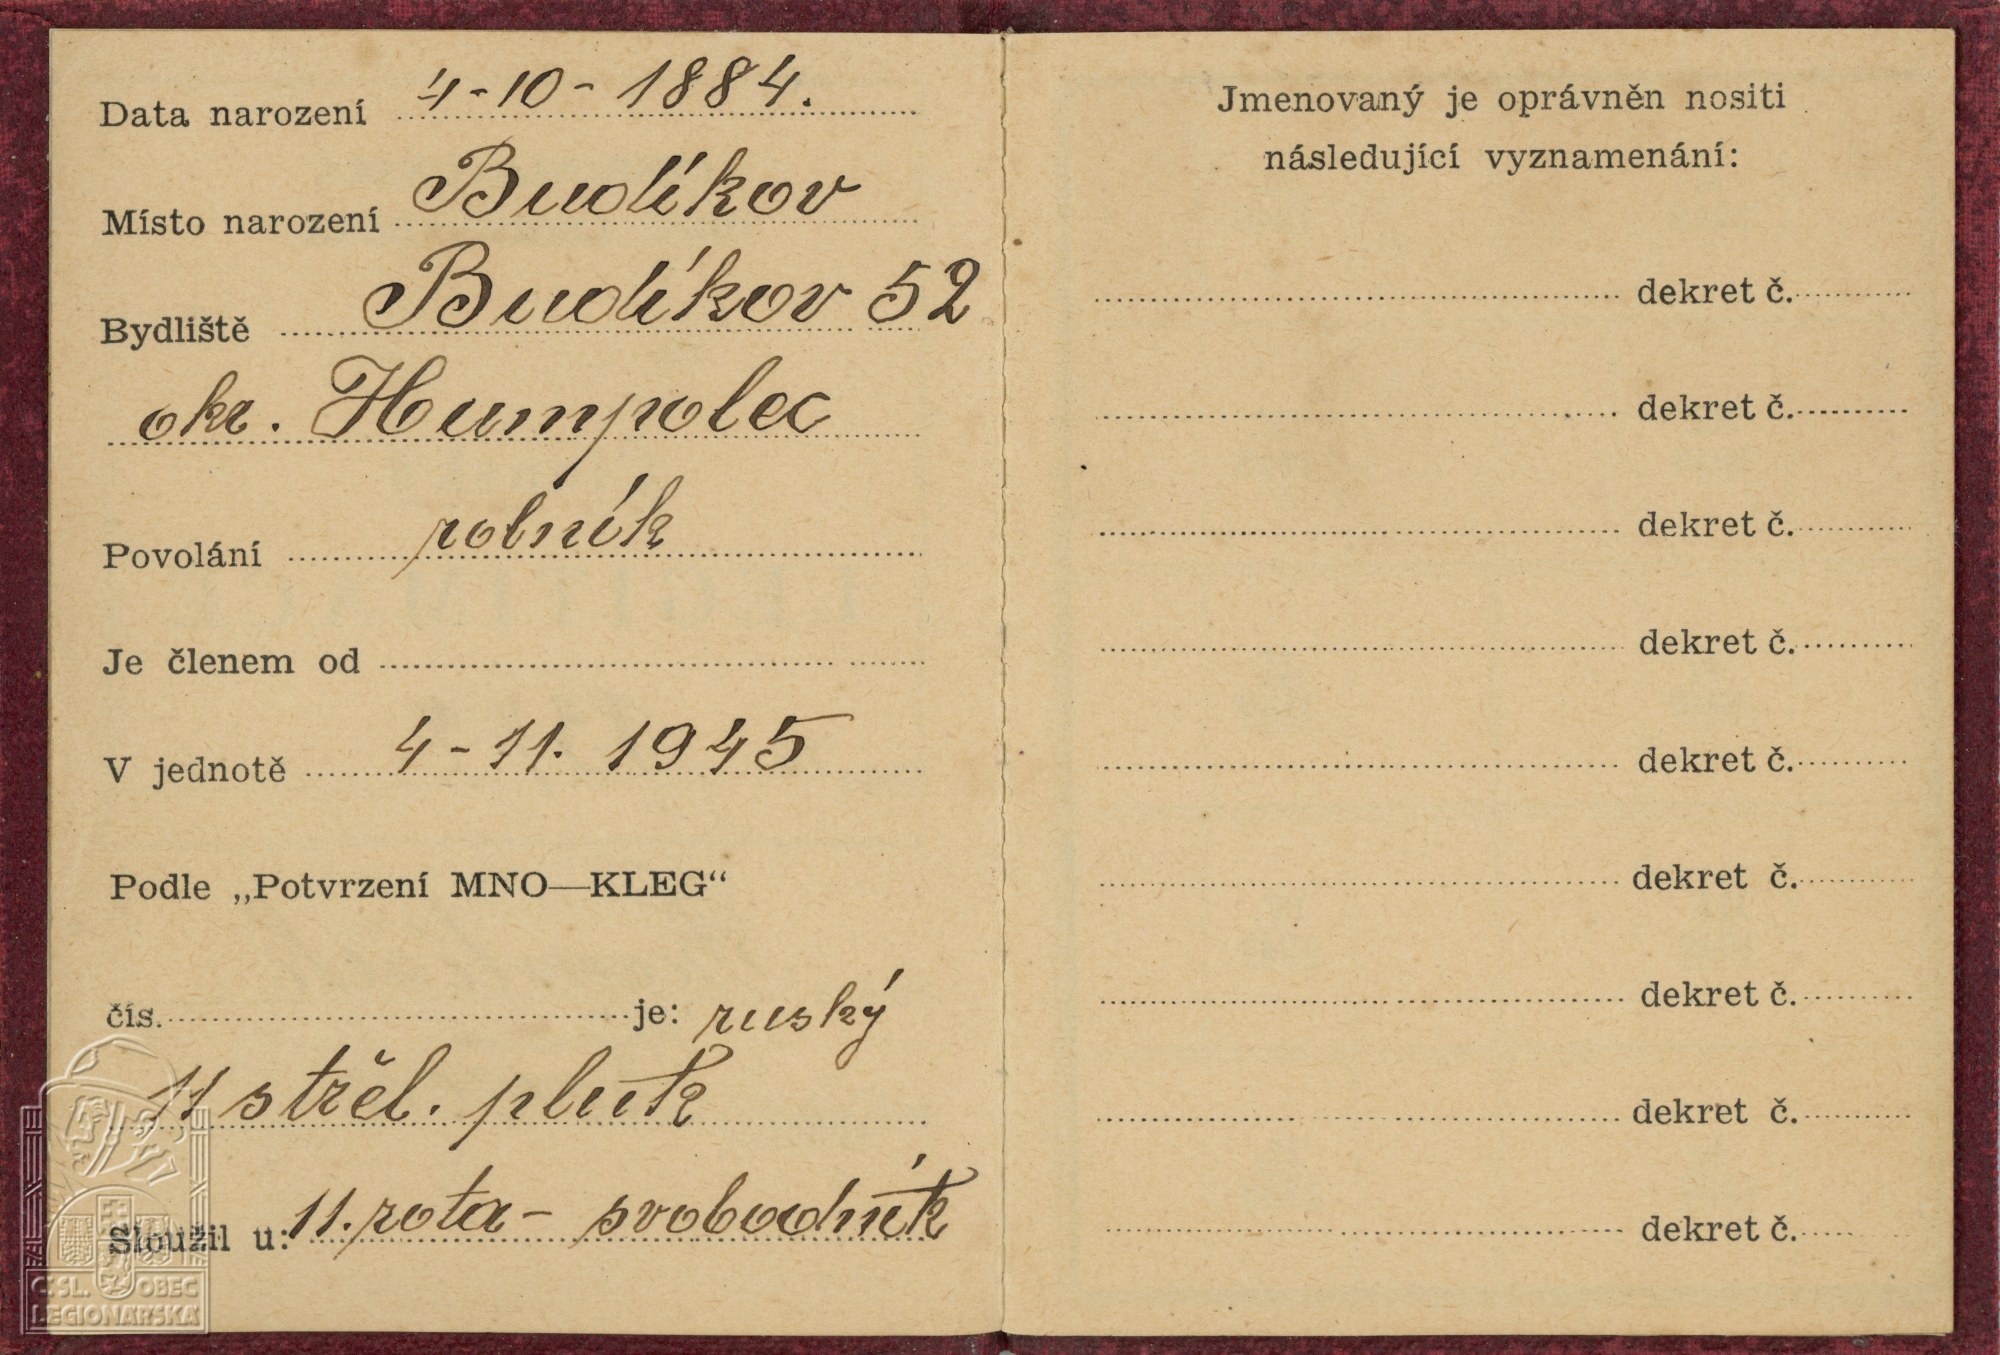 Data narození 4-10-1884.
Místo narození Budíkov
Bydliště Budíkov 52
okr. Humpolec
Povolání rolník
Je členem od
V jednotě 4-11. 1945
Podle „Potvrzení MNO—KLEG“
čís. je: ruský
11 střel. pluk
Sloužil u: 11. rota - svobodník
Č.SL. OBEC
LEGIONÁŘSKÁ
Jmenovaný je oprávněn nositi
následující vyznamenání:
dekret č.
dekret č.
dekret č.
dekret č.
dekret č.
dekret č.
dekret č.
dekret č.
dekret č.